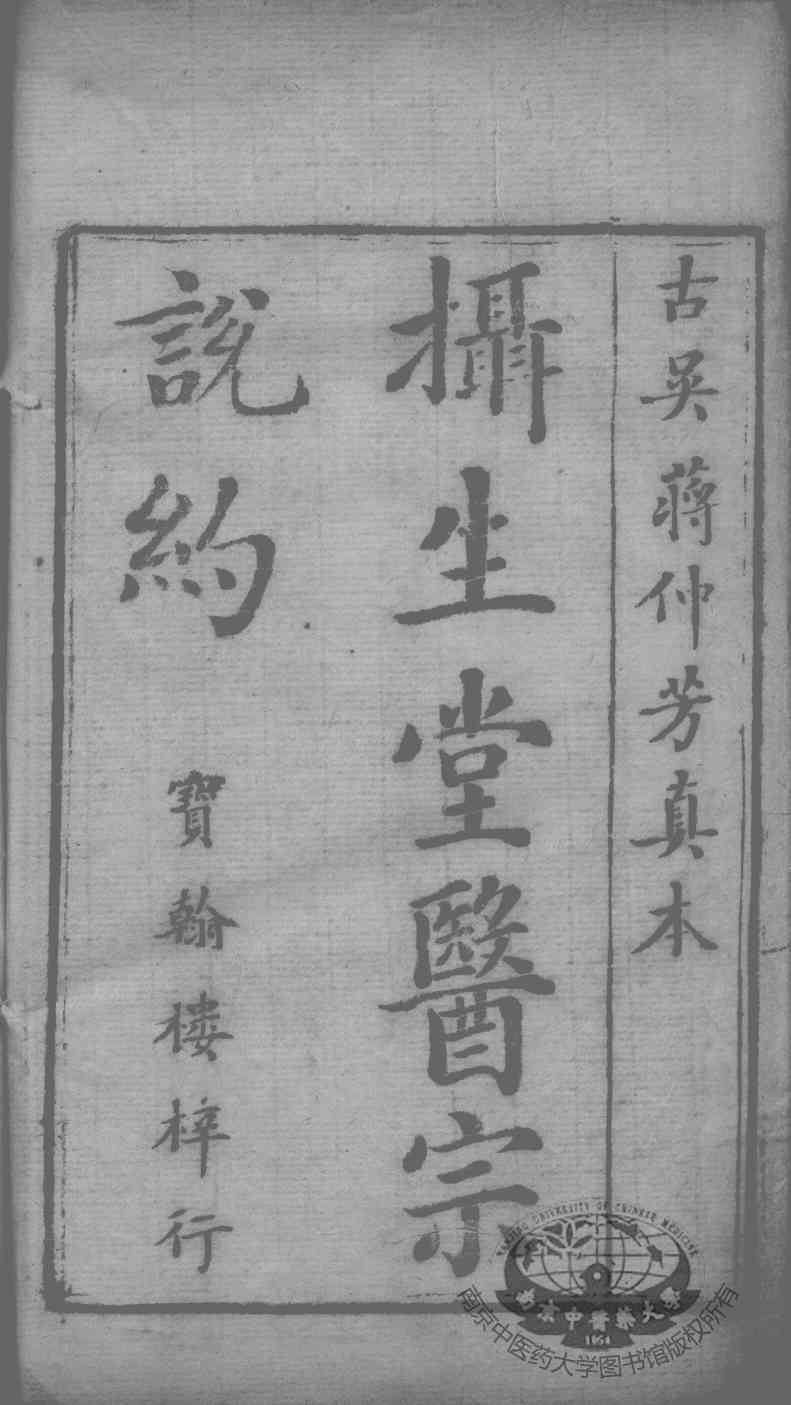 古吳蔣仲芳真本
攝生堂醫宗
說約
寶翰楼梓行
NANJING UNIVERSITY OF CHINESE MEDICINE
南京中醫藥大學
1954
南京中医药大学图书馆版权所有